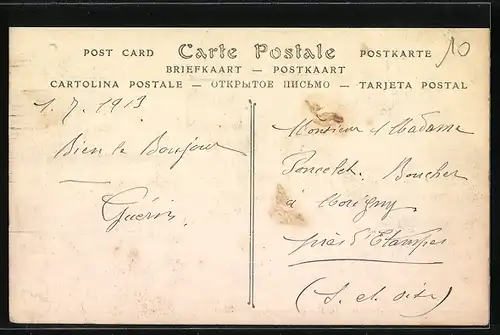 10
POST CARD Carte Postale POSTKARTE
BRIEFKAART — POSTKAART
CARTOLINA POSTALE — ОТКРЫТОЕ ПИСЬМО — TARJETA POSTAL
1. 7. 1913
Bien le Bonjour
Guérin
Monsieur & Madame
Poncelet. Boucher
à Morigny
près d'Etampes
(S. et Oise)